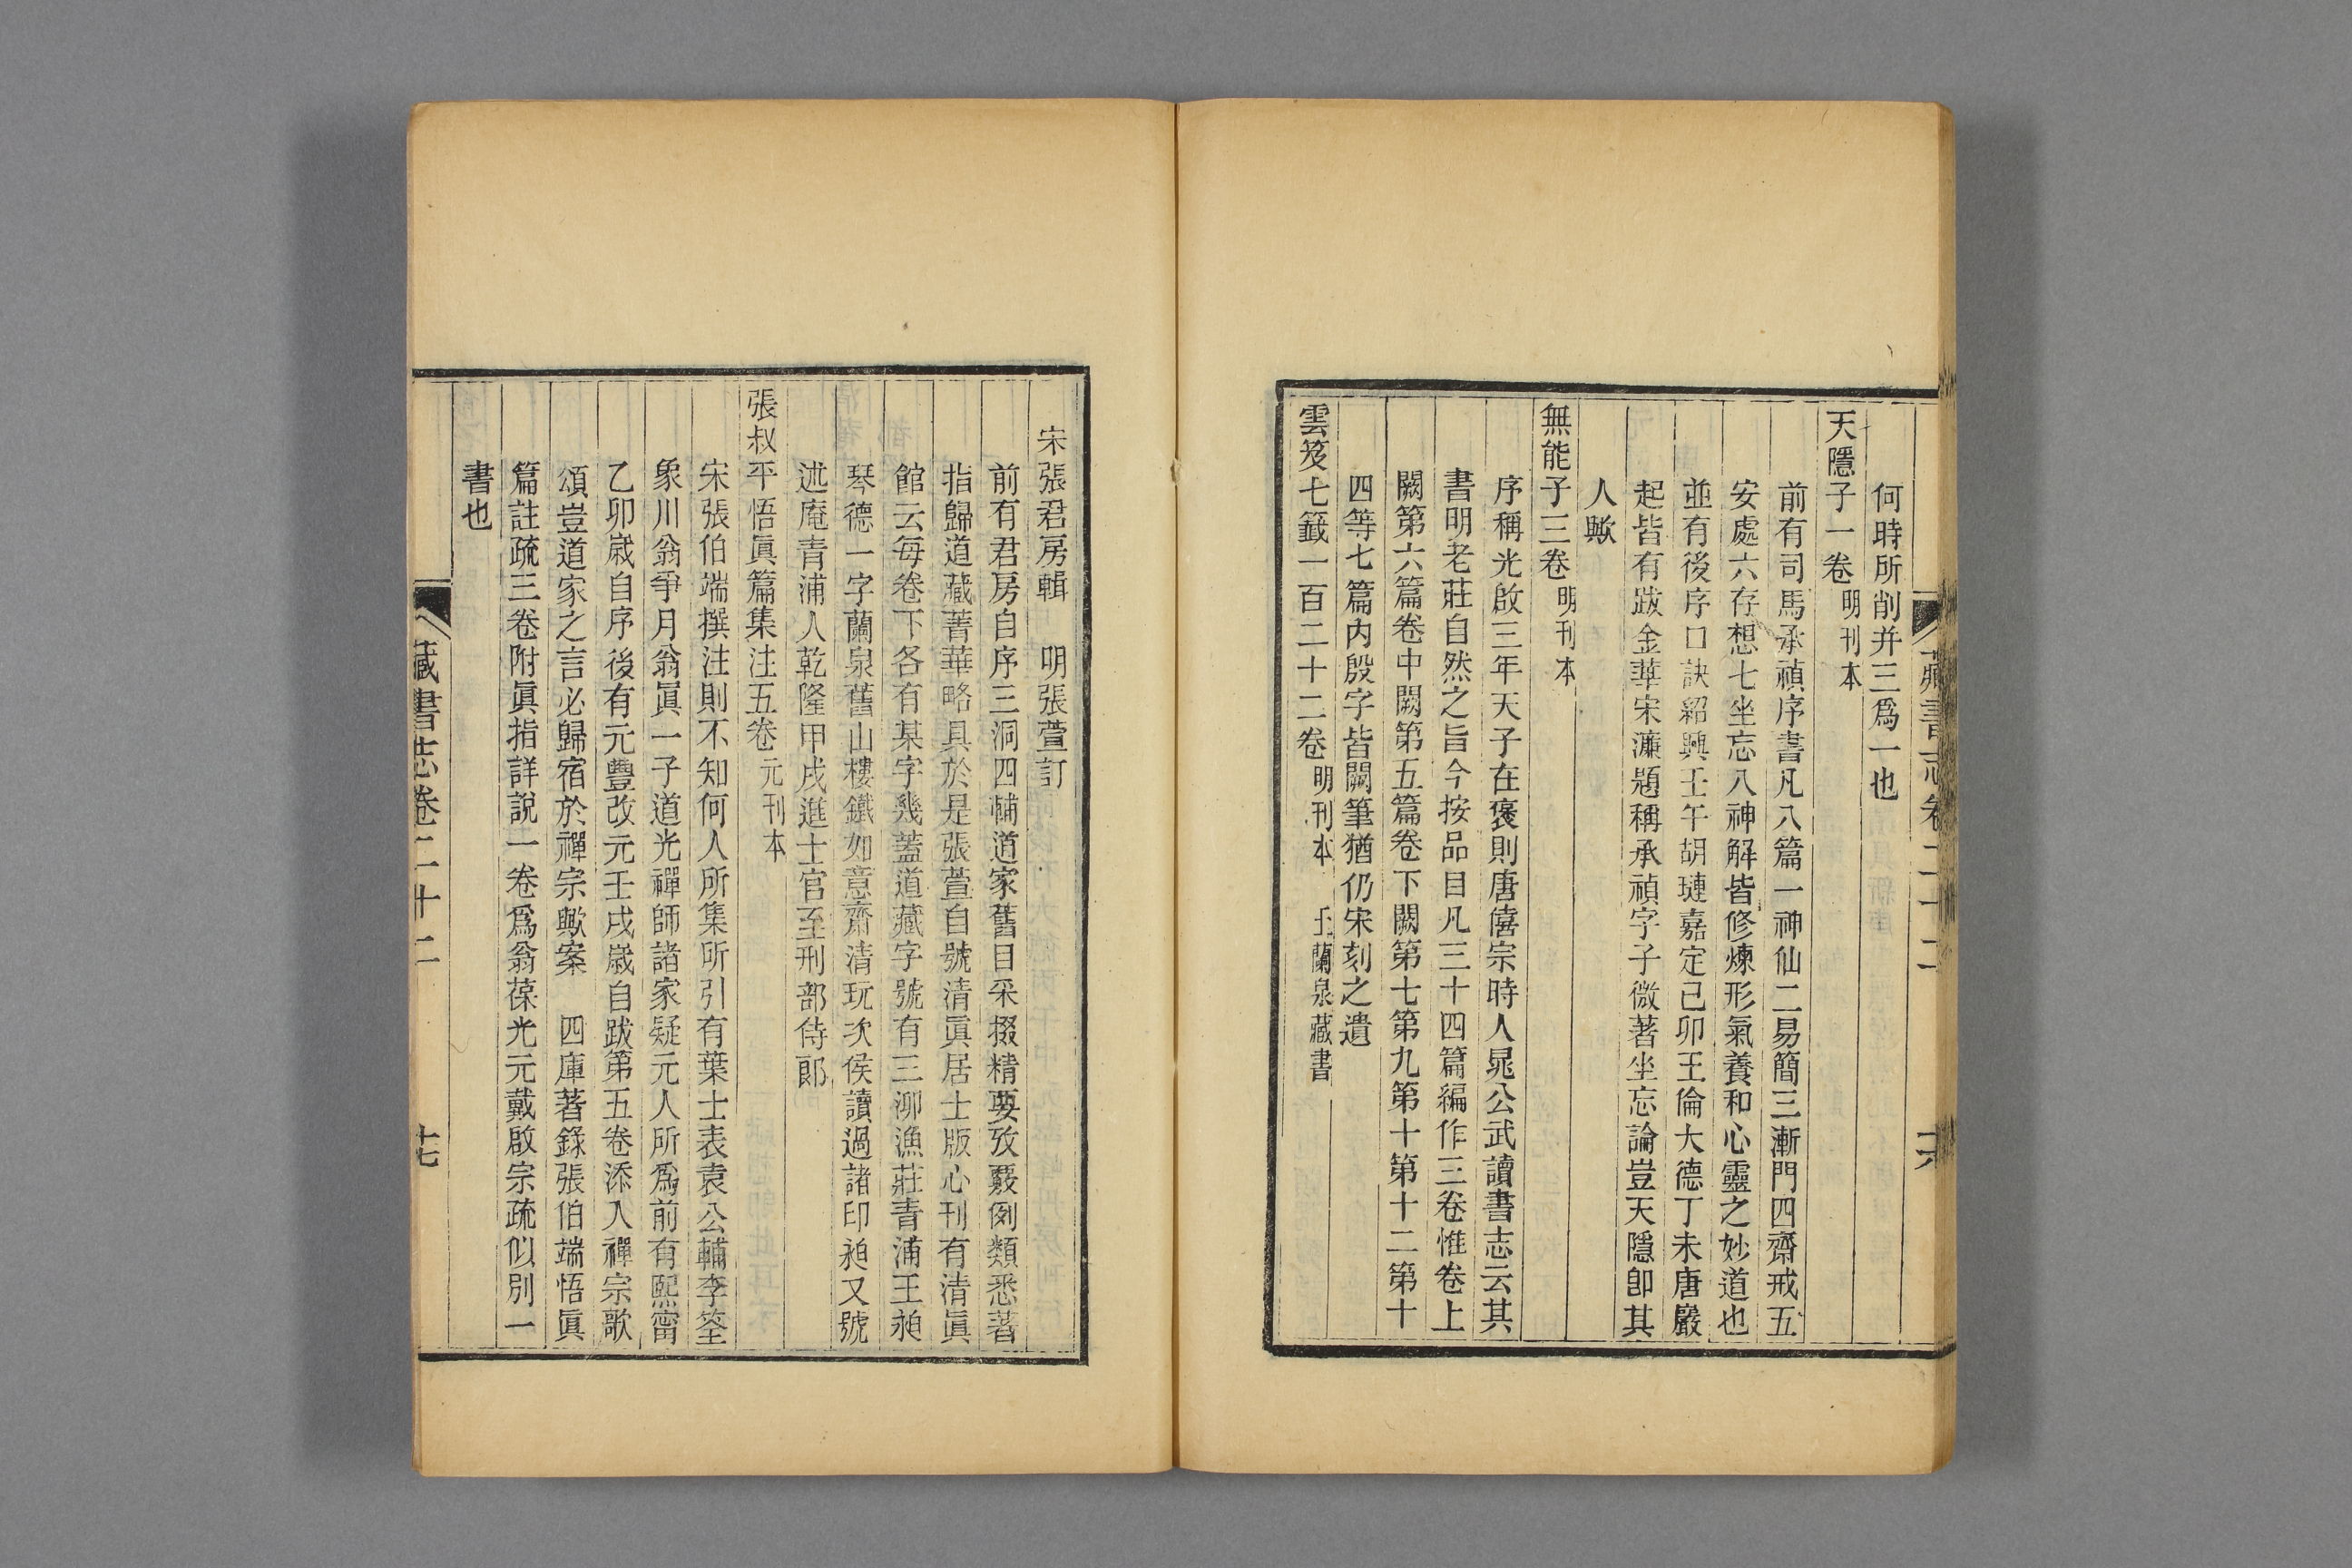 藏書志卷二十二
六
何時所削并三爲一也
天隱子一卷 明刊本
前有司馬承禎序書凡八篇一神仙二易簡三漸門四齋戒五
安處六存想七坐忘八神解皆修煉形氣養和心靈之妙道也
並有後序口訣紹興壬午胡璉嘉定己卯王倫大德丁未唐嚴
起皆有跋金華宋濂題稱承禎字子微著坐忘論豈天隱卽其
人歟
無能子三卷 明刊本
序稱光啟三年天子在褒則唐僖宗時人晁公武讀書志云其
書明老莊自然之旨今按品目凡三十四篇編作三卷惟卷上
闕第六篇卷中闕第五篇卷下闕第七第九第十第十二第十
四等七篇内殷字皆闕筆猶仍宋刻之遺
雲笈七籤一百二十二卷 明刊本 王蘭泉藏書
宋張君房輯 明張萱訂
前有君房自序三洞四輔道家舊目采掇精要攷覈例類悉著
指歸道藏菁華略具於是張萱自號清眞居士版心刊有清眞
館云每卷下各有某字幾蓋道藏字號有三泖漁莊青浦王昶
琴德一字蘭泉舊山樓鐵如意齋清玩次侯讀過諸印昶又號
述庵青浦人乾隆甲戌進士官至刑部侍郞
張叔平悟眞篇集注五卷 元刊本
宋張伯端撰注則不知何人所集所引有葉士表袁公輔李筌
象川翁爭月翁眞一子道光禪師諸家疑元人所爲前有熙甯
乙卯歲自序後有元豐改元壬戌歲自跋第五卷添入禪宗歌
頌豈道家之言必歸宿於禪宗歟案 四庫著錄張伯端悟眞
篇註疏三卷附眞指詳說一卷爲翁葆光元戴啟宗疏似別一
書也
藏書志卷二十二
十七